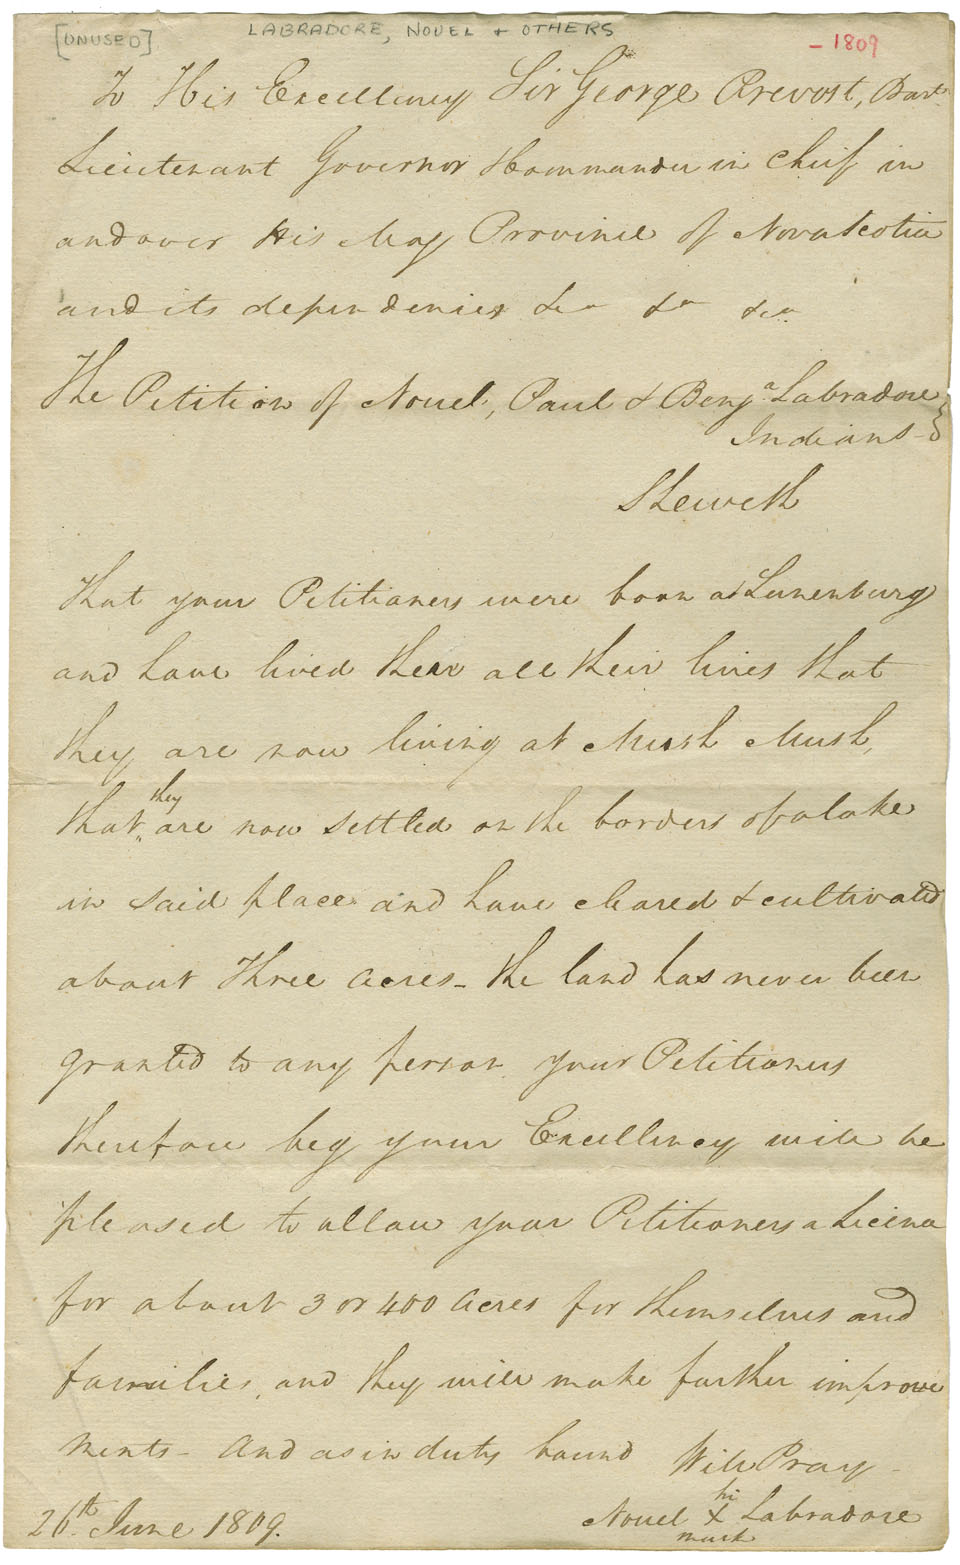 [UNUSED] LABRADORE, NOUEL + OTHERS
- 1809
To His Excellency Sir George Prevost, Bart
Lieutenant Governor & Commander in Chief in
and over His Maj Province of Nova Scotia
and its dependencies &c &c &c
The Petition of Nouel, Paul & Benja Labradore
Indians -
Sheweth
That your Petitioners were born at Lunenburg
and have lived there all their lives that
they are now living at Mush Mush,
that they are now settled on the borders of a lake
in said place and have cleared & cultivated
about Three acres - the land has never been
granted to any person your Petitioners
therefore beg your Excellency will be
pleased to allow your Petitioners a Licence
for about 3 or 400 acres for themselves and
families, and they will make further improve
ments - And as in duty bound Will Pray -
26th June 1809.
Nouel his X mark Labradore